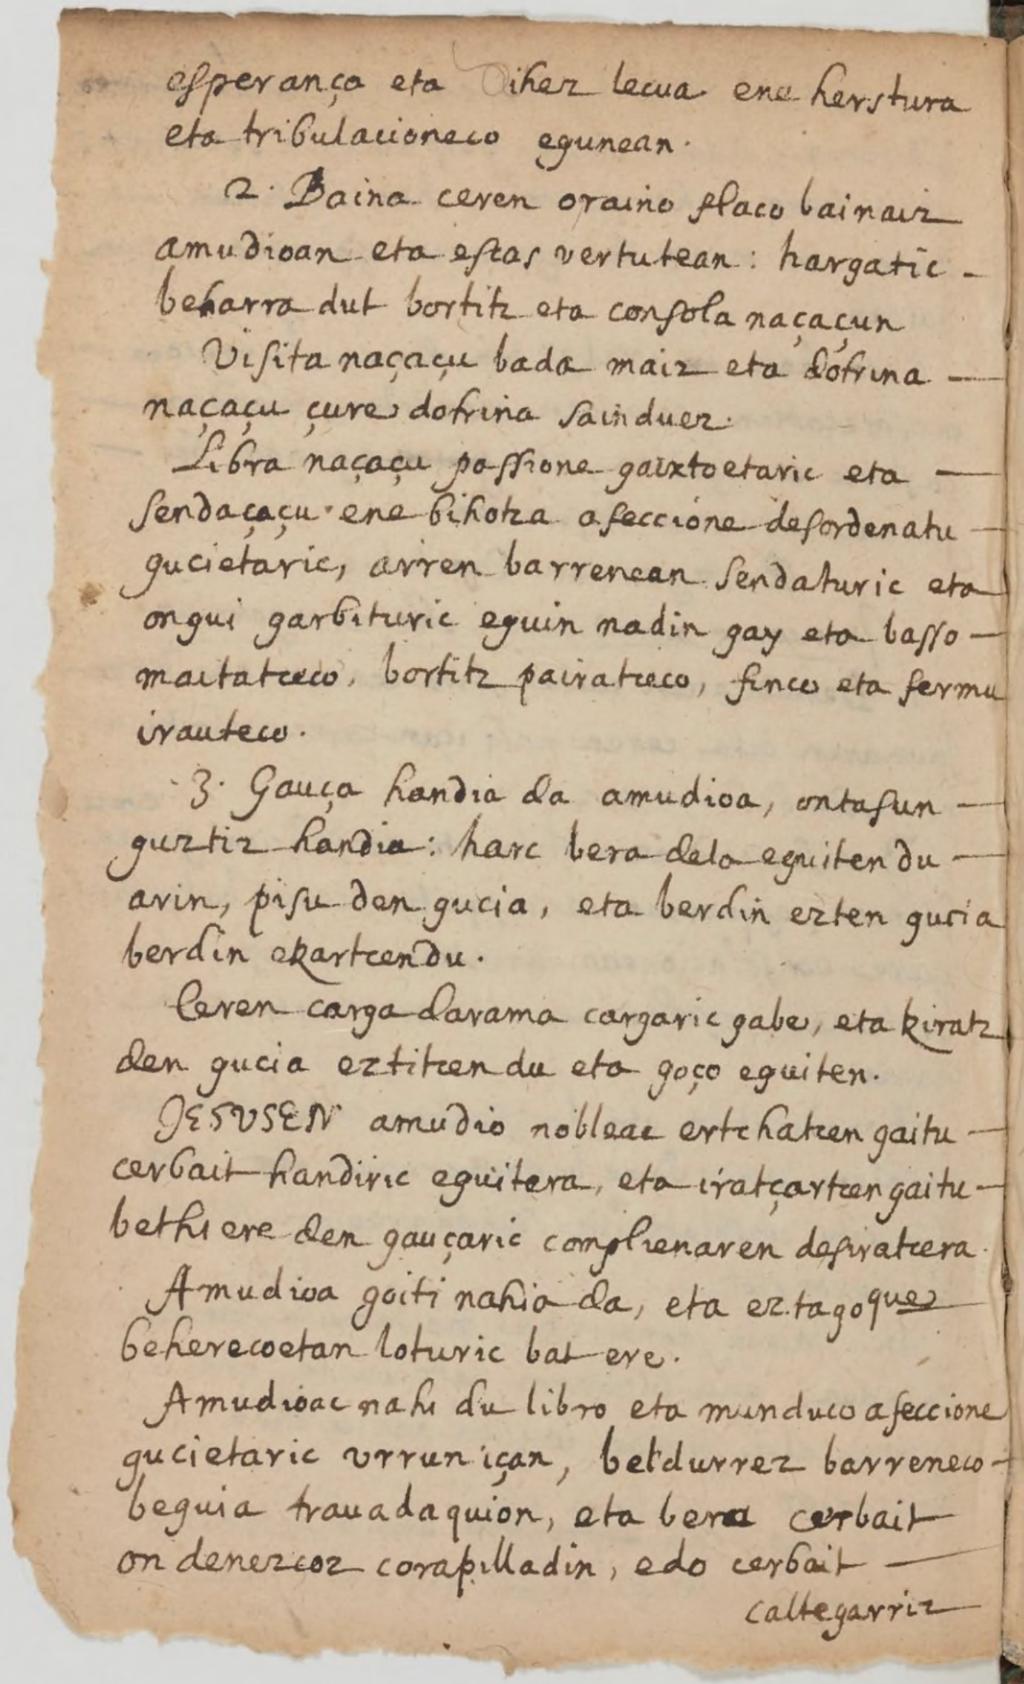 esperança eta ihez lecua ene herstura
eta tribulacioneco egunean.
2. Baina ceren oraino flaco bainaiz
amudioan eta escas vertutean: hargatic
beharra dut bortitz eta consola naçaçun
Visita naçaçu bada maiz eta dotrina
naçaçu çure dotrina sainduez.
Libra naçaçu passione gaixtoetaric eta
sendaçaçu ene bihotza afeccione desordenatu
gucietaric, arren barrenean sendaturic eta
ongui garbituric eguin nadin gay eta basso
maitatceco, bortitz pairatceco, finco eta fermu
irauteco.
3. Gauça handia da amudioa, ontasun
guztiz handia: harc bera dela eguiten du
arin, pisu den gucia, eta berdin ezten gucia
berdin ekartcendu.
Ceren carga darama cargaric gabe, eta kiratz
den gucia eztitcen du eta goço eguiten.
JESUSEN amudio nobleac ertchatcen gaitu
cerbait handiric eguitera, eta iratçartcen gaitu
bethi ere den gauçaric complienaren desiratcera.
Amudioa goiti nahia da, eta ez.tagoque
beherecoetan loturic bat ere.
Amudioac nahi du libro eta munduco afeccione
gucietaric urrun içan, beldurrez barreneco
beguia trauadaquion, eta bera cerbait
on denezcoz corapilladin, edo cerbait
caltegarriz